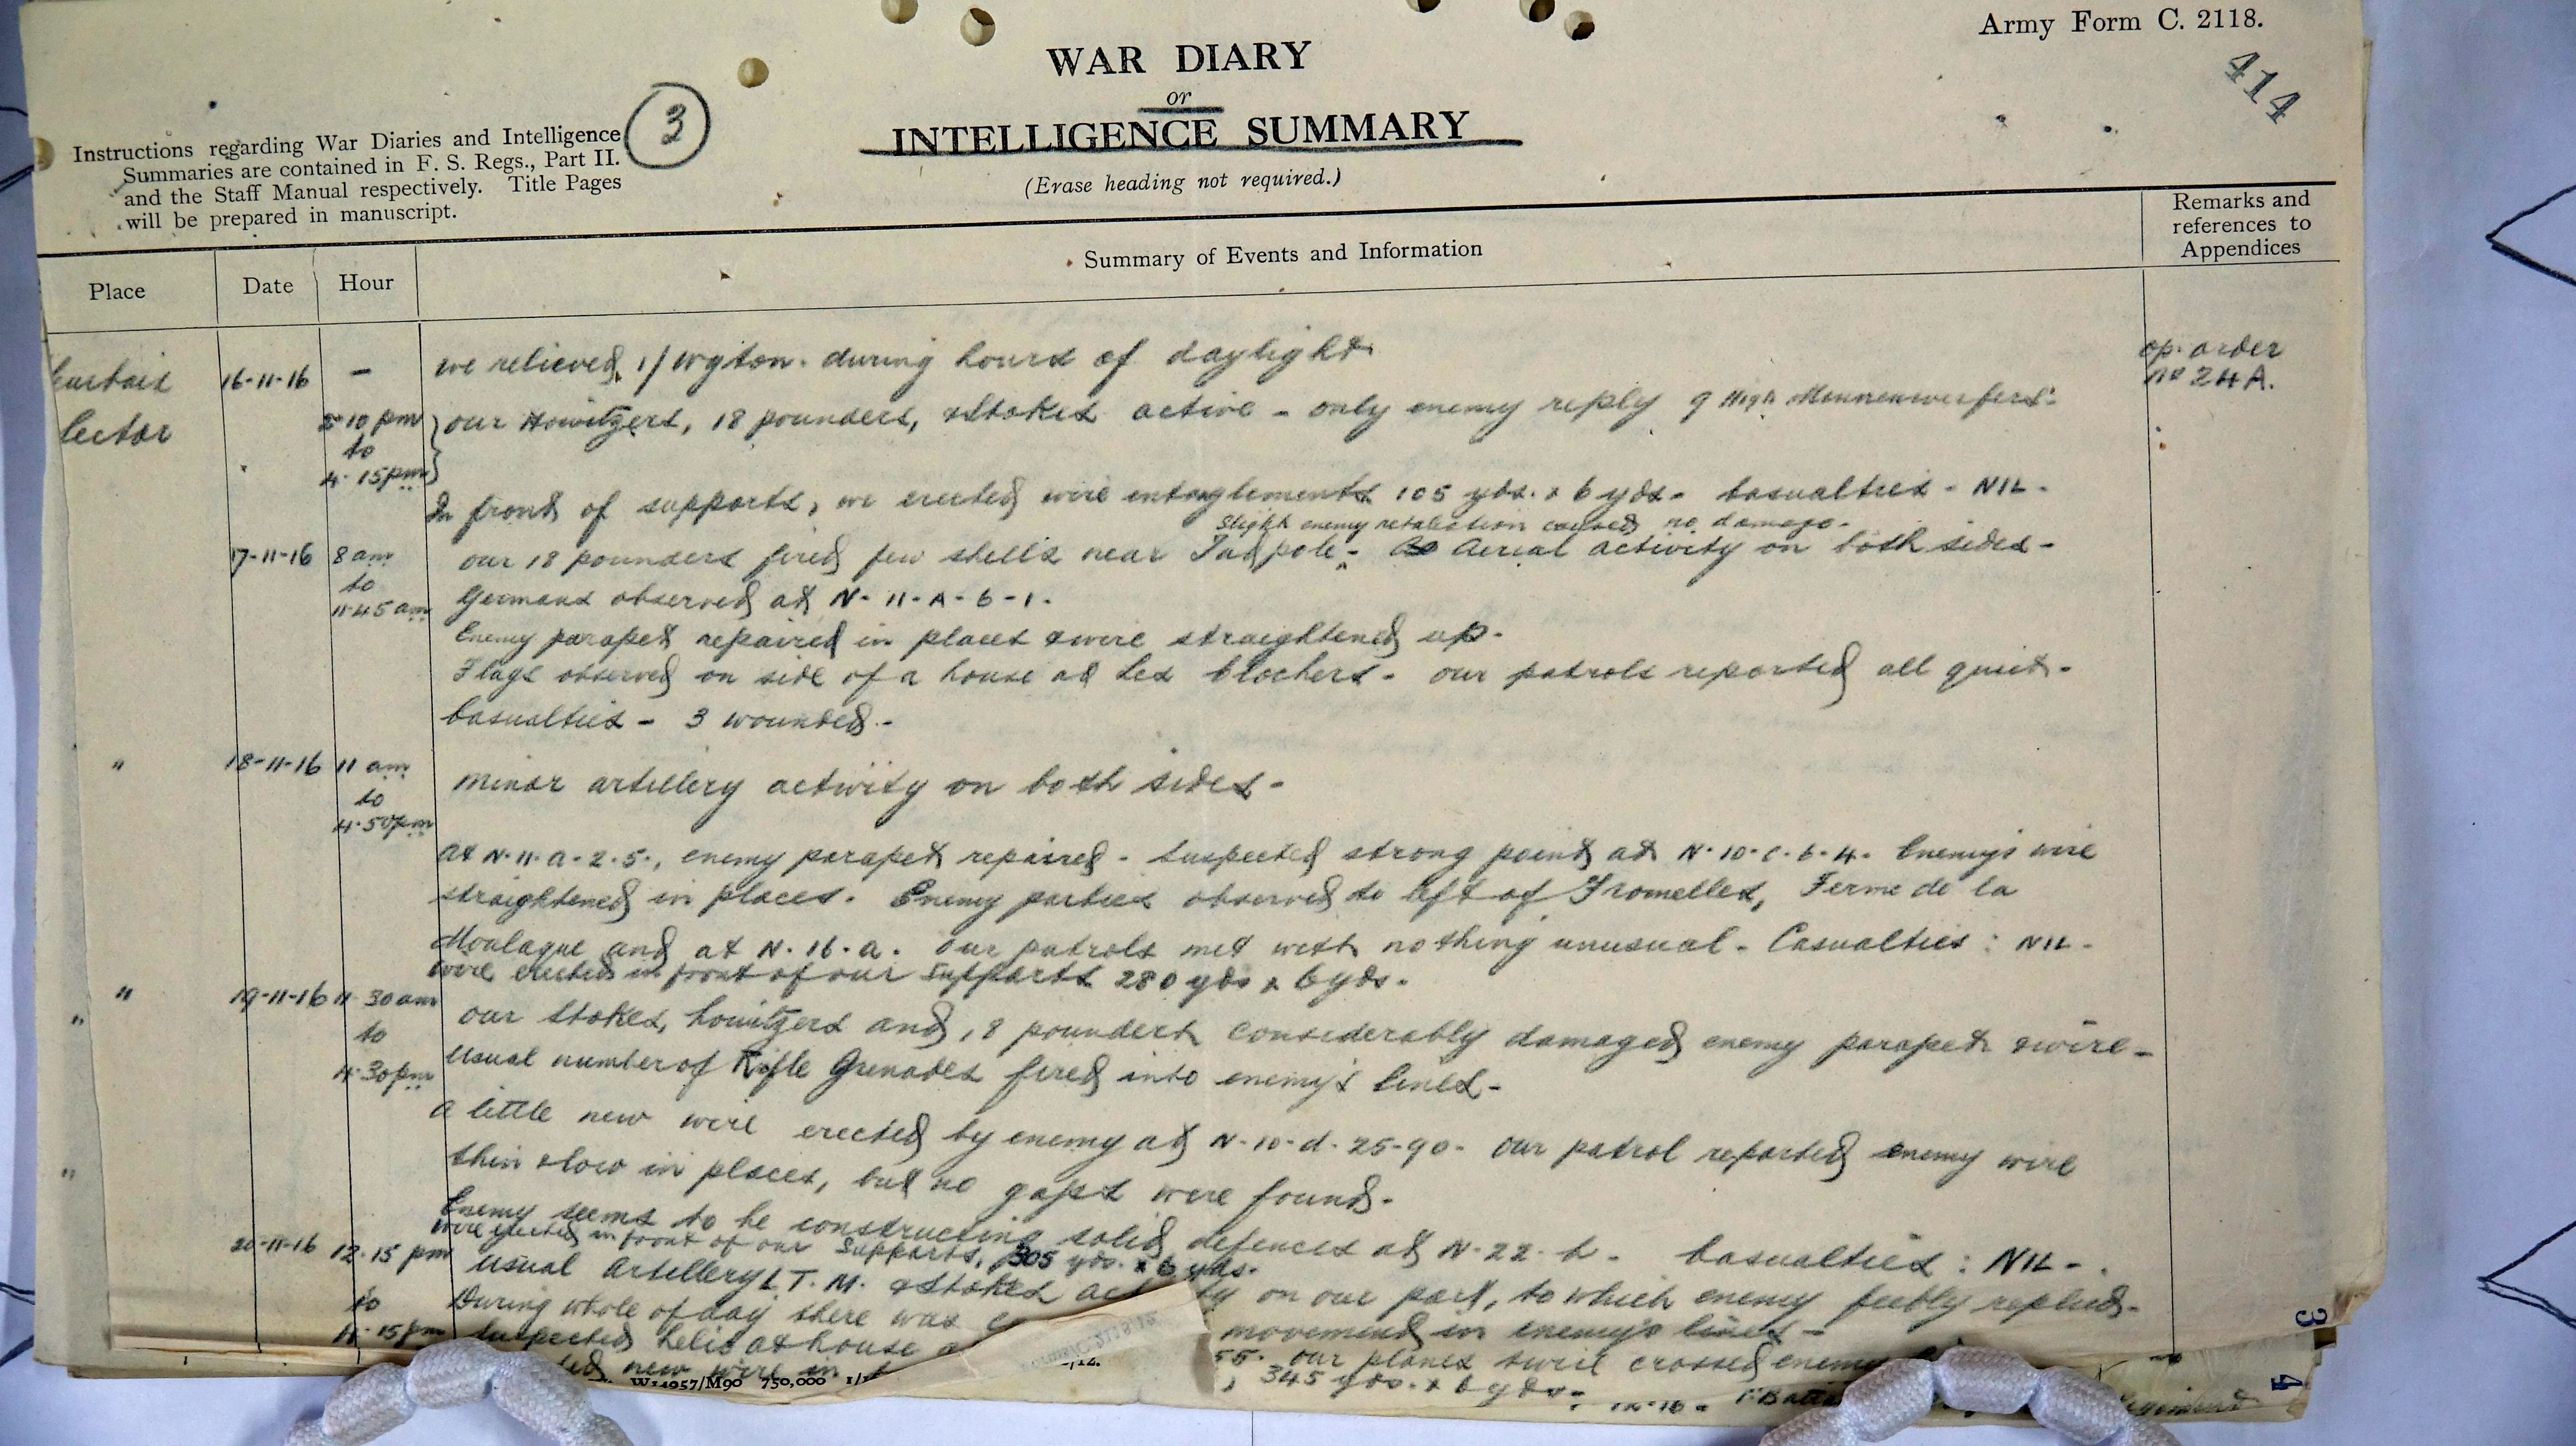 Army Form C. 2118.
414
WAR DIARY
or
INTELLIGENCE SUMMARY
(Erase heading not required.)
Instructions regarding War Diaries and Intelligence
Summaries are contained in F. S. Regs., Part II.
and the Staff Manual respectively. Title Pages
will be prepared in manuscript.
3
Place
Date
Hour
Summary of Events and Information
Remarks and
references to
Appendices
Sector
16-11-16
-
we relieved 1/Wgton. during hours of daylight
op. order
no 24A.
2-10 pm
to
4.15pm
our Howitzers, 18 pounders, & Stokes active - only enemy reply 9 High Minnenwerfers.
In front of supports, we erected wire entanglements 105 yds. x 6 yds - Casualties - NIL -
Slight enemy retaliation caused no damage -
17-11-16
8 am
to
11.45 am
our 18 pounders fired few shells near Tadpole - Aerial activity on both sides -
Germans observed at N-11-A-6-1.
Enemy parapet repaired in places & wire straightened up.
Flags observed on side of a house at Les Clochers - our patrols reported all quiet -
Casualties - 3 wounded -
"
18-11-16
11 am
to
4.50pm
Minor artillery activity on both sides -
at N.11.a.2.5., enemy parapet repaired - Suspected strong point at N.10.c.6.4. Enemy's wire
straightened in places. Enemy parties observed to left of Fromelles, Ferme de la
and at N.16.a. our patrols met with nothing unusual - Casualties : NIL -
Wire erected in front of our supports 280 yds x 6yds.
"
19-11-16
11.30am
to
4.30pm
"
our Stokes, howitzers and 18 pounders considerably damaged enemy parapet & wire -
Usual number of Rifle Grenades fired into enemy's lines -
A little new wire erected by enemy at N-10-d.25-90. our patrol reported enemy wire
thin & low in places, but no gaps were found.
"
Enemy seems to be constructing solid defences at N-22-b - Casualties : NIL -
Wire erected in front of our Supports, 305 yds. x 6 yds.
20-11-16
12.15 pm
to
4.15pm
Usual Artillery L.T.M. & Stokes act ty on our part, to which enemy feebly replied -
During whole of day there was movement in enemy's lines -
Suspected helio at house 55. our planes twice crossed enemy
new wire in 345 yds. x 6 yds -
W14957/M90 750,000
3
4